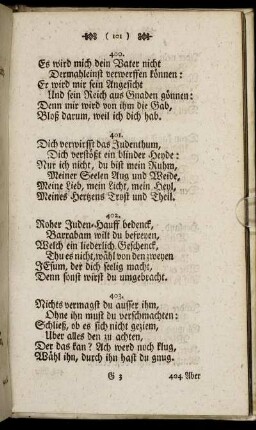 ( 101 )
400.
Es wird mich dein Vater nicht
Dermahleinst verwerffen können:
Er wird mir sein Angesicht
Und sein Reich aus Gnaden gönnen:
Denn mir wird von ihm die Gab,
Bloß darum, weil ich dich hab.
401.
Dich verwirfft das Judenthum,
Dich verstößt ein blinder Heyde:
Nur ich nicht, du bist mein Ruhm,
Meiner Seelen Aug und Weide,
Meine Lieb, mein Licht, mein Heyl,
Meines Hertzens Trost und Theil.
402.
Roher Juden-Hauff bedenck,
Barrabam wilt du befreyen,
Welch ein liederlich Geschenck,
Thu es nicht, wähl von den zweyen
JEsum, der dich seelig macht,
Denn sonst wirst du umgebracht.
403.
Nichts vermagst du ausser ihm,
Ohne ihn must du verschmachten:
Schließ, ob es sich nicht geziem,
Uber alles den zu achten,
Der das kan? Ach werd noch klug,
Wähl ihn, durch ihn hast du gnug.
G 3 404 Aber